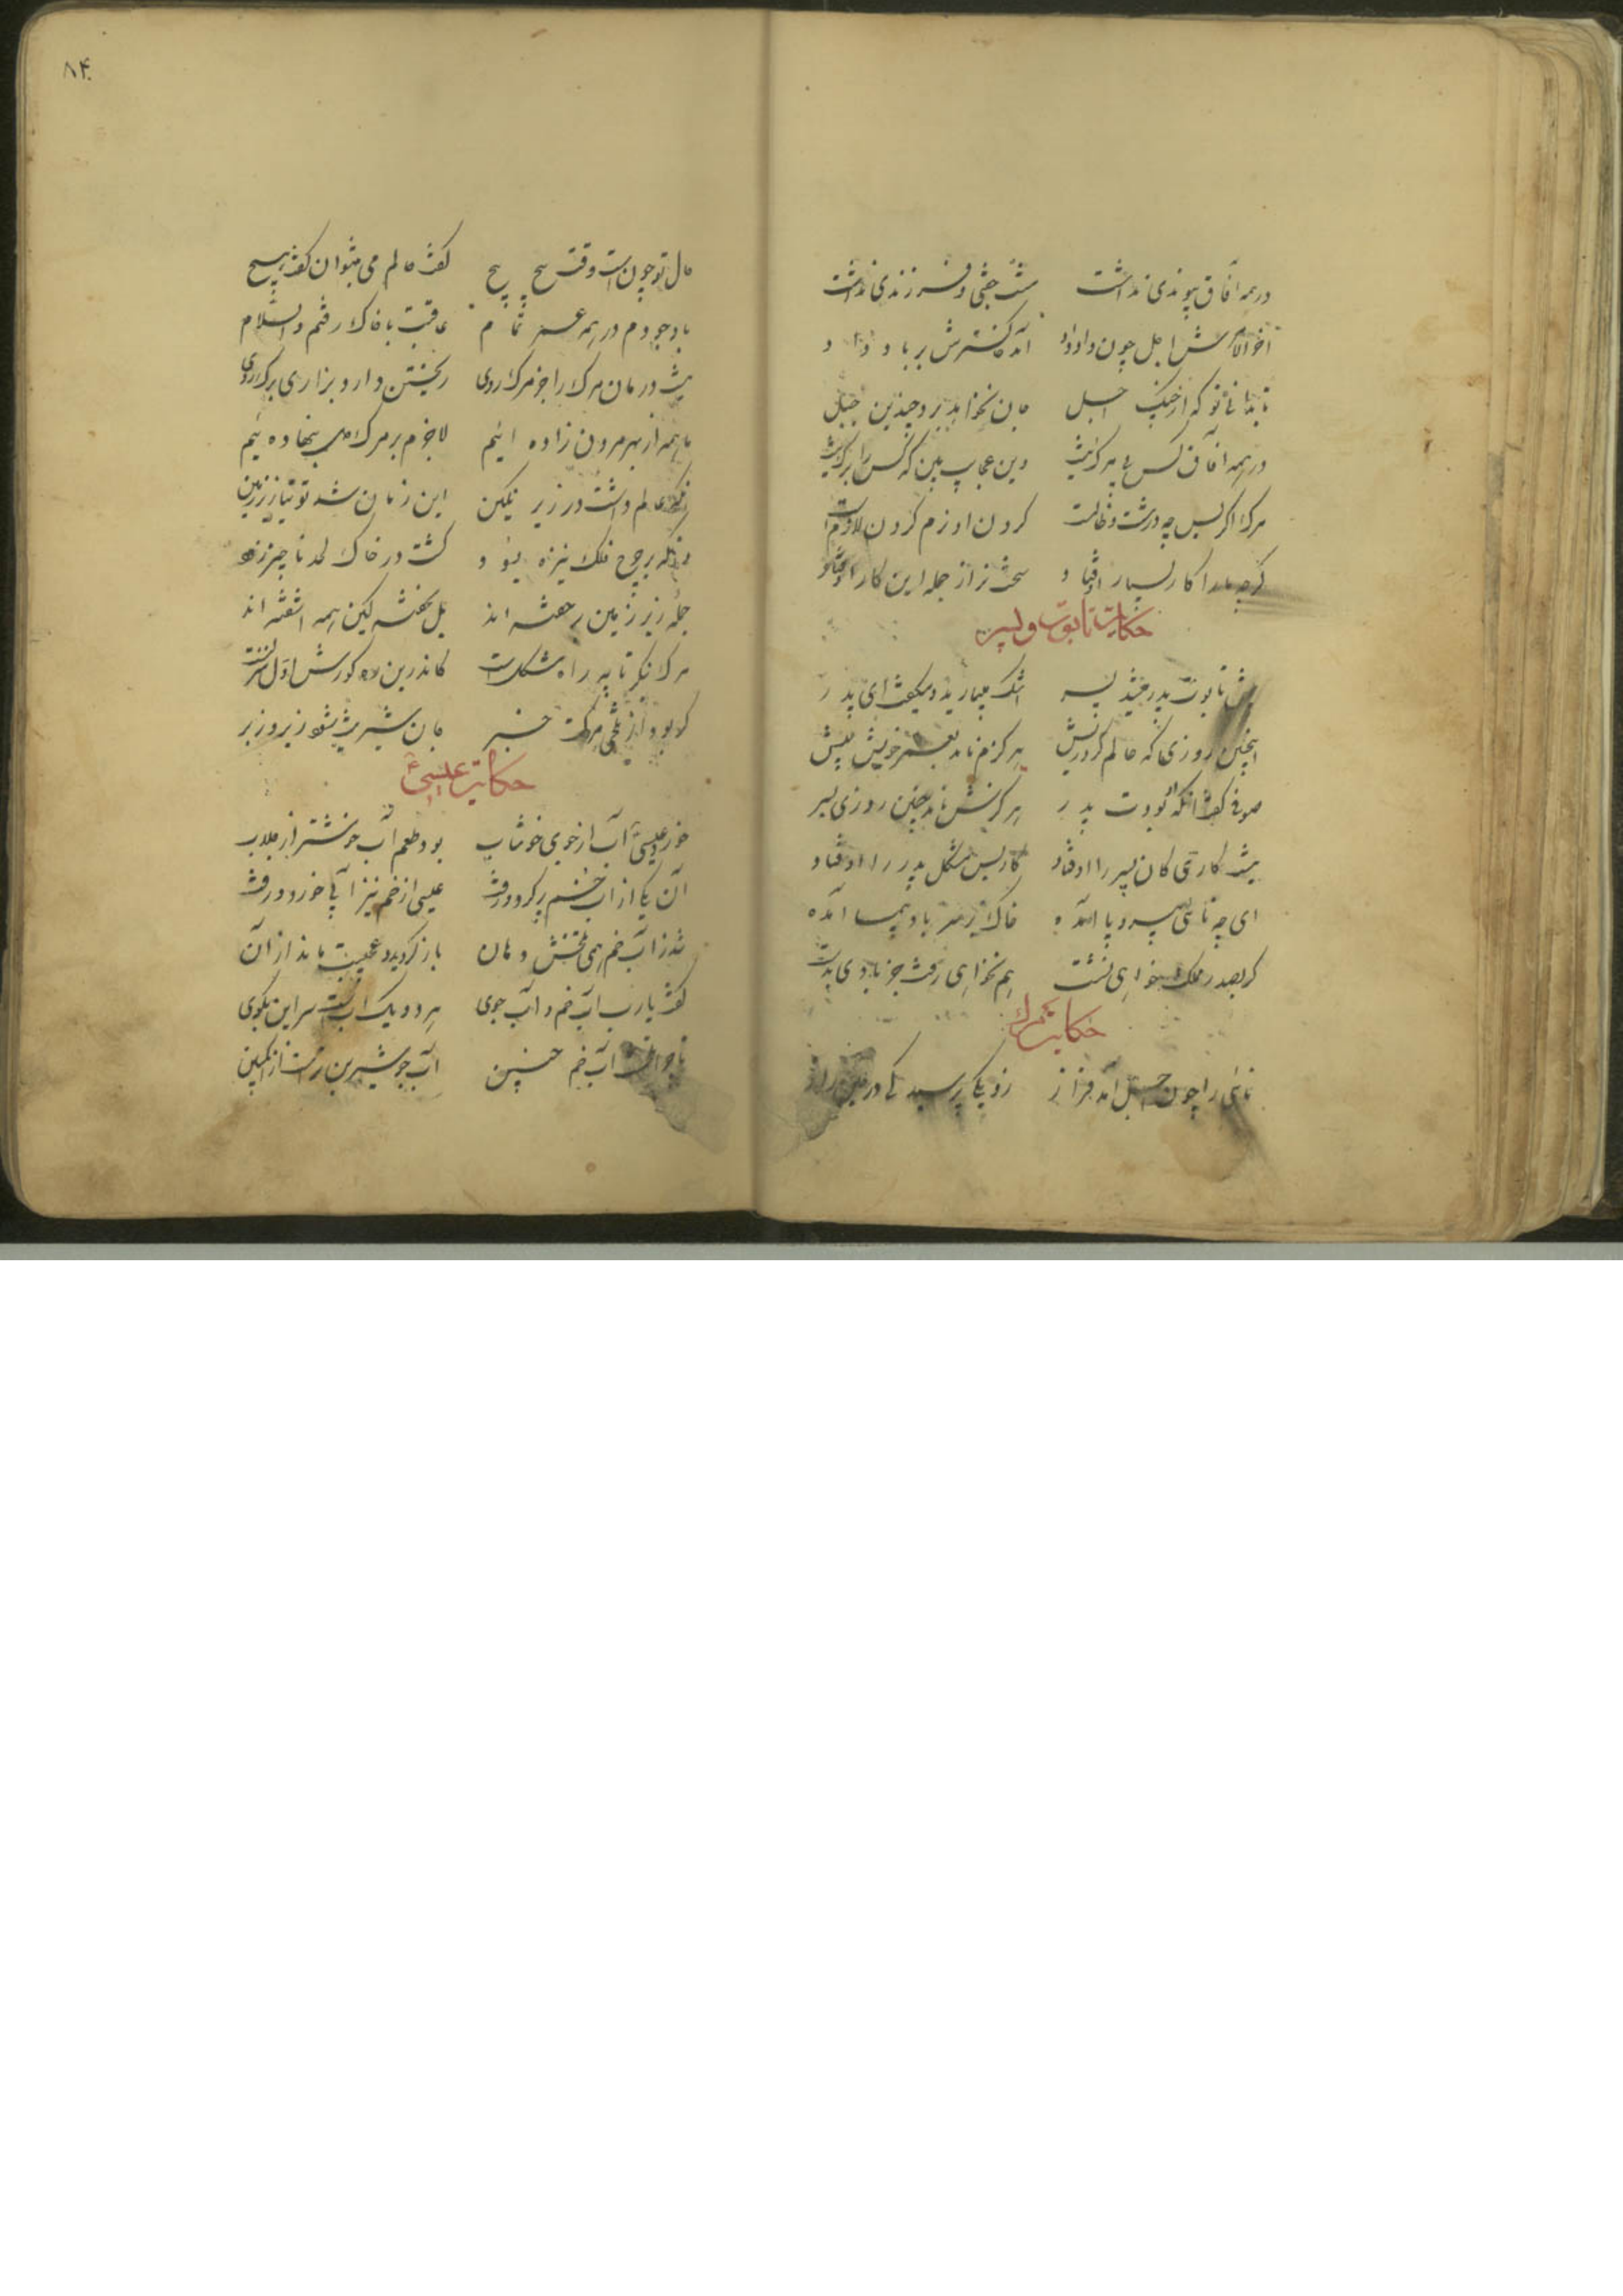 در همه آفاق پیوندی نداشت هیچ جفتی و فرزندی نداشت
آخر الامرش اجل چون داد داد آمد و خاکسترش بر باد داد
تا بدانی تو که از چنگ اجل جان نخواهد برد چندین حیل
در همه آفاق کس بی مرگ نیست وین عجایب بین که کس را برگ نیست
مرگ اگر بس چه درشت و ظالمست گردن او نرم کردن لازمست
گرچه ما را کار بسیار اوفتاد سخت تر از جمله این کار اوفتاد
حکایت تابوت و پسر
پیش تابوت پدر میشد پسر اشک میبارید و میگفت ای پدر
اینچنین روزی که عالم کرد ریش هرگزم نامد بعمر خویش پیش
صوفی گفت آنکه او بودت پدر هرگزش نامد چنین روزی بسر
نیست کاری کان پسر را اوفتاد کار بس مشکل پدر را اوفتاد
ای چه ناشی بی سر و پا آمده خاک بر سر باد پیما آمده
گر بصدر مملکت خواهی نشست هم نخواهی رفت جز بادی بدست
حکایت مرگ
نائی را چون اجل آمد فراز زو یکی پرسید کی در عین راز
۸۴
حال تو چون است وقت پیچ پیچ گفت حالم می بنتوان گفت هیچ
باد پیمودم در همه عمر تمام عاقبت با خاک رفتم والسلام
نیست درمان مرگ را جز مرگ روی ریختن دارد بزاری برگ روی
ما همه از بهر مردن زاده ایم لاجرم بر مرگ دل بنهاده ئیم
آنکه عالم داشت در زیر نگین این زمان شد توتیا زیر زمین
وانکه بر چرخ فلک نیزه بود گشت در خاک لحد ناچیز زود
جمله زیر زمین بر خفته اند بل نخفته لیکن همه آشفته اند
مرگ بنگر تا چه راه مشکلست کاندرین ره گورش اول منزلست
گر بود از تلخی مرگت خبر جان شیرینت شود زیر و زبر
حکایت عیسی ع
خورد عیسی آب از جوی خوشاب بود طعم آب خوشتر از جلاب
آن یکی از آب خم پر کرد و رفت عیسی از خم نیز آبی خورد و رفت
شد ز آب خم همی تلخش دهان باز گردید و عجیب ماند از آن
گفت یارب آب خم و آب جوی هر دو یک آبست سر این بگوی
تا چرا آب خم چنین آب جو شیرین تر است از انگبین